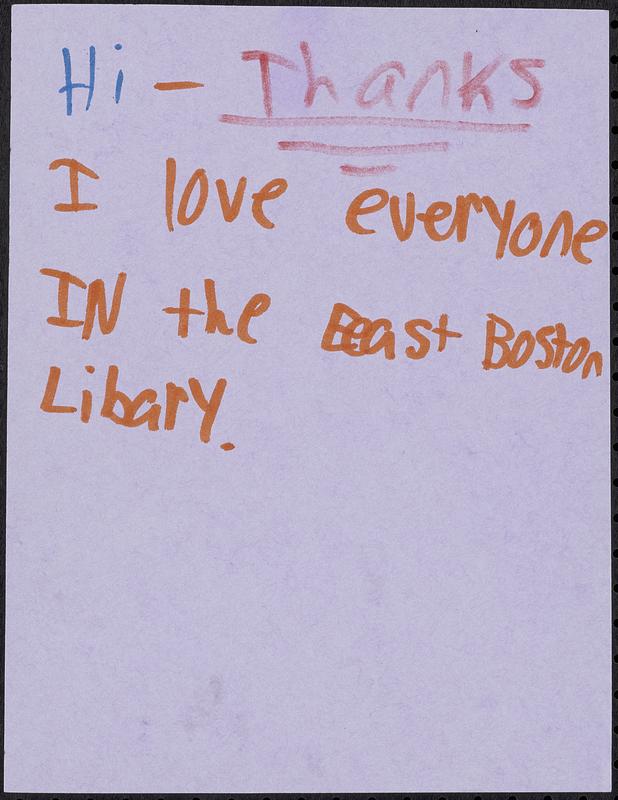 Hi - Thanks
I love everyone
IN the East Boston
Libary.